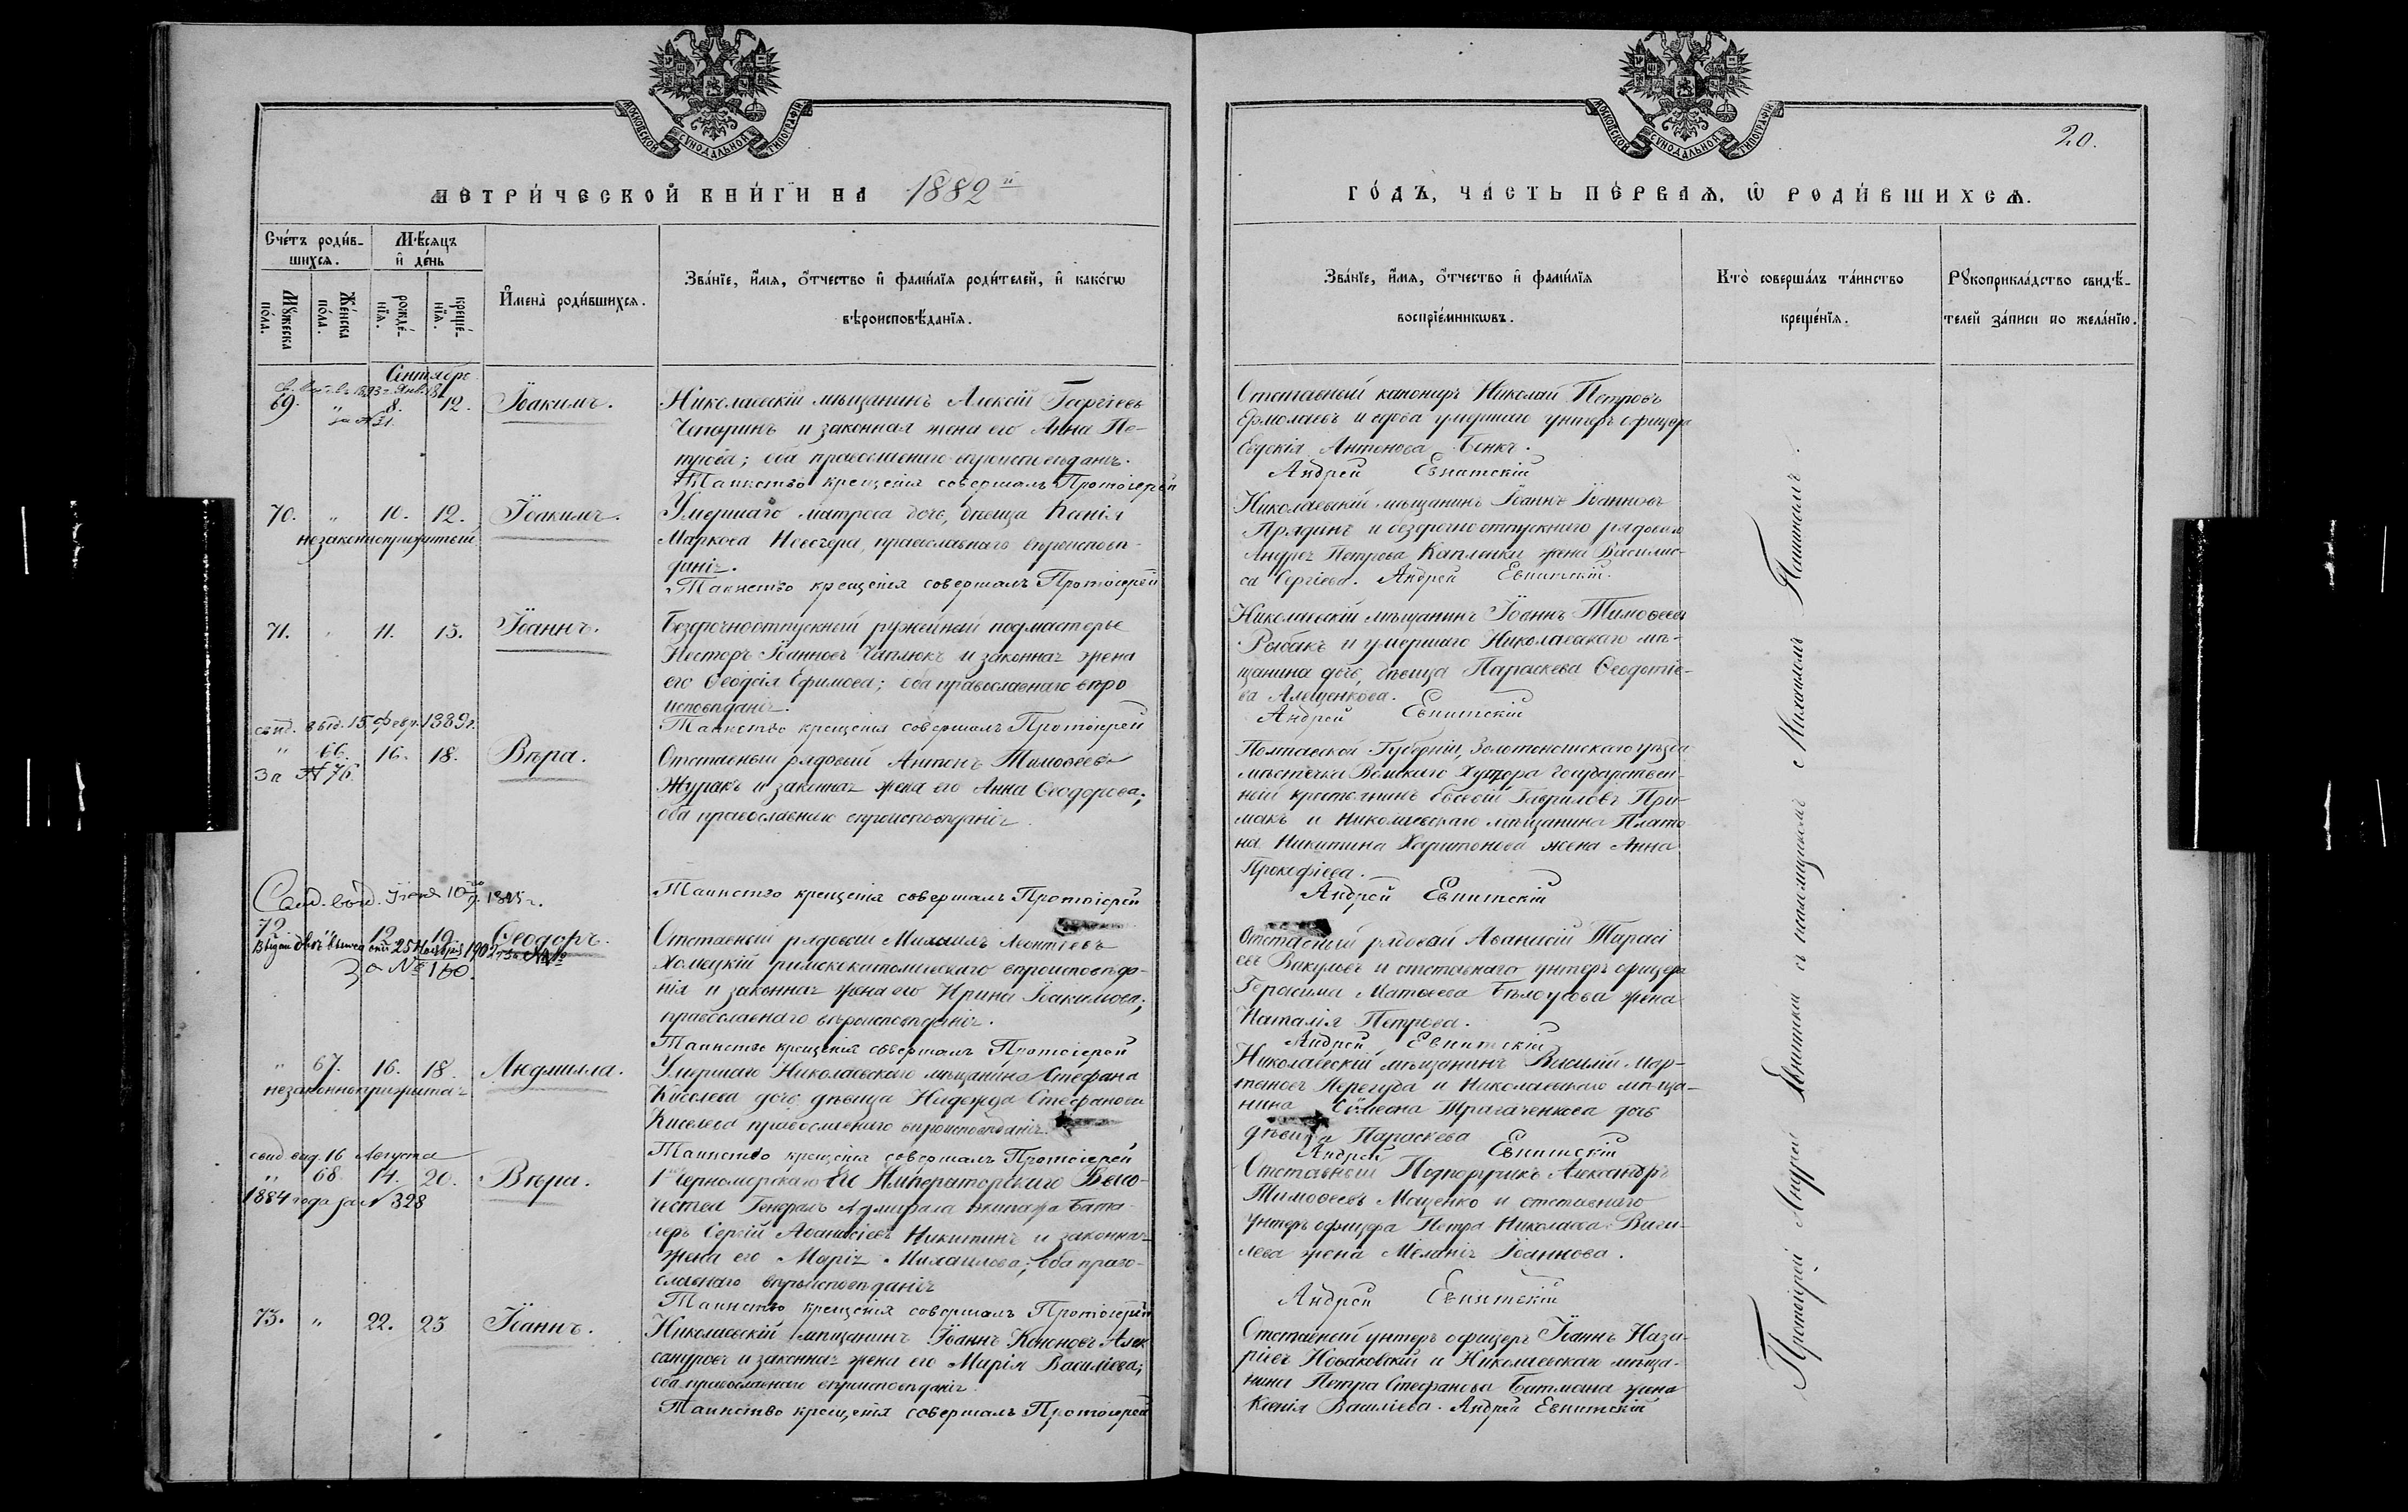 МОСКОВСКОЙ СѴНОДАЛЬНОЙ ТИПОГРАФІИ
МЕТРИ́ЧЕСКОЙ КНИ́ГИ НА 1882й
Сче́тъ роди́в-
шихсѧ.
Мꙋ́жеска
по́ла.
Же́нска
по́ла.
Мѣ́сѧцъ
и҆ де́нь
рожде́-
нїѧ.
креще́-
нїѧ.
И҆мена̀ роди́вшихсѧ.
Зва́нїе, и҆́мѧ, ѻ҆́тчество и҆ фами́лїѧ роди́телей, и҆ како́гѡ
вѣроисповѣ́данїѧ.
Сентябрь
69. " 8. 12. Іоакимъ.
за № 31.
Николаевскій мѣщанинъ Алексій Георгіевъ
Чепоринъ и законная жена его Анна Пе-
трова; оба православнаго вѣроисповѣданія.
Таинство крещенія совершалъ Протоіерей
70. " 10. 12. Іоакимъ.
незаконноприжитый
Умершаго матроса дочь, дѣвица Ксенія
Маркова, православнаго вѣроисповѣ-
данія.
Таинство крещенія совершалъ Протоіерей
71. " 11. 15. Іоаннъ.
Безсрочноотпускный ружейный подмастерье
Несторъ Іоанновъ Чаплюкъ и законная жена
его Ѳеодосія Ефимова; оба православнаго вѣро
исповѣданія.
Таинство крещенія совершалъ Протоіерей
свид. выд. 15 февр. 1889 г.
" 66. 16. 18. Вѣра.
За № 76.
Отставный рядовый Антонъ Тимоѳеевъ
Журакъ и законная жена его Анна Ѳеодорова;
оба православнаго вѣроисповѣданія.
Таинство крещенія совершалъ Протоіерей
Свид. выд. Іюня 10
72. " 12. 19. Ѳеодоръ.
25 Ноября 1902
За № 160.
Отставный рядовый Михаилъ Леонтіевъ
Хомецкій римскокатолическаго вѣроисповѣда-
нія и законная жена его Ирина Іоакимова;
православнаго вѣроисповѣданія.
Таинство крещенія совершалъ Протоіерей
" 67. 16. 18. Людмилла.
незаконноприжитая
Умершаго Николаевскаго мѣщанина Стефана
Киселева дочь дѣвица Надежда Стефанова
Киселева православнаго вѣроисповѣданія.
Таинство крещенія совершалъ Протоіерей
свид выд. 16 Августа
" 68. 14. 20. Вѣра.
1884 года за № 328
1го Черноморскаго Его Императорскаго Высо-
чества Генералъ Адмирала Экипажа бата-
леръ Сергій Аѳанасіевъ Никитинъ и законная
жена его Марія Михаилова; оба право-
славнаго вѣроисповѣданія
Таинство крещенія совершалъ Протоіерей
73. " 22. 23 Іоаннъ.
Николаевскій мѣщанинъ Іоаннъ Кононовъ Алек
сандровъ и законная жена его Марія Василіева;
оба православнаго вѣроисповѣданія.
Таинство крещенія совершалъ Протоіерей
МОСКОВСКОЙ СѴНОДАЛЬНОЙ ТИПОГРАФІИ
20.
ГО́ДЪ, ЧА́СТЬ ПЕ́РВАѦ, Ѡ҆ РОДИ́ВШИХСѦ.
Зва́нїе, и҆́мѧ, ѻ҆́тчество и҆ фами́лїѧ
воспрїе́мникѡвъ.
Кто̀ соверша́лъ та́инство
креще́нїѧ.
Рꙋкоприкла́дство свидѣ́-
телей за́писи по жела́нїю.
Отставный канониръ Николай Петровъ
Ермолаевъ и вдова умершаго унтеръ офицера
Евдокія Антонова.
Андрей Евнитскій
Николаевскій мѣщанинъ Іоаннъ Іоанновъ
Прядинъ и безсрочноотпускнаго рядоваго
Андрея Петрова Капленки жена Василис-
са Сергіева. Андрей Евнитскій.
Николаевскій мѣщанинъ Іоаннъ Тимоѳеевъ
Рыбакъ и умершаго Николаевскаго мѣ-
щанина дочь, дѣвица Параскева Ѳеодотіе-
ва Алещенкова.
Андрей Евнитскій
Полтавской Губерніи, Золотоношскаго уѣзда
мѣстечка Хутора государствен-
ный крестьянинъ Евсевій Гавриловъ При-
макъ и Николаевскаго мѣщанина Плато
на Никитина Харитонова жена Анна
Прокофіева.
Андрей Евнитскій
Отставный рядовый Аѳанасій Тарасі
евъ Вакульевъ и отставнаго унтеръ офицера
Герасима Матѳеева Бѣлоусова жена
Наталія Петрова.
Андрей Евнитскій
Николаевскій мѣщанинъ Василій Мар-
тыновъ Перегуда и Николаевскаго мѣща-
нина Сѵмеона Трагаченкова дочь
дѣвица Параскева
Андрей Евнитскій
Отставный Подпоручикъ Александръ
Тимоѳеевъ Мащенко и отставнаго
унтеръ офицера Петра Николаева Виги-
лева жена Меланія Іоаннова.
Андрей Евнитскій
Отставный унтеръ офицеръ Іоаннъ Наза-
ріевъ Новаковскій и Николаевскаго мѣща-
нина Петра Стефанова Батмана жена
Ксенія Василіева. Андрей Евнитскій
Протоіерей Андрей Евнитскій съ псаломщикомъ Михаиломъ